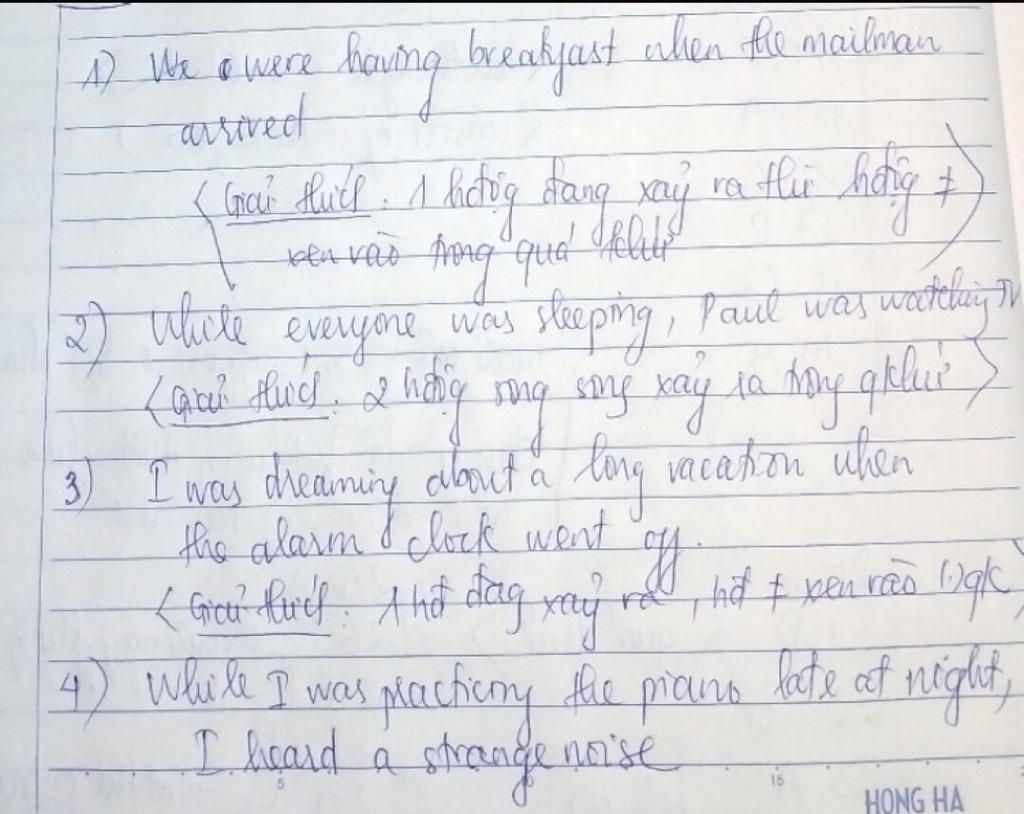 1) We were having breakfast when the mailman
arrived
< Giải thích: 1 hđộg đang xảy ra thì hđộg ≠
xen vào trong quá khứ >
2) While everyone was sleeping, Paul was watching TV
< Giải thích: 2 hđộg song song xảy ra trong qkhứ >
3) I was dreaming about a long vacation when
the alarm clock went off.
< Giải thích: 1 hđ đag xảy ra, hđ ≠ xen vào (.) qk
4) While I was practicing the piano late at night,
I heard a strange noise
5 15
HONG HA